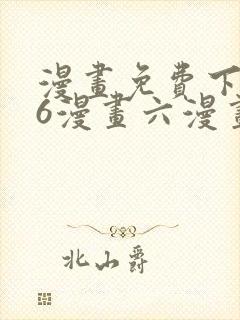 漫畫免費下
6漫畫六漫畫
北山爵